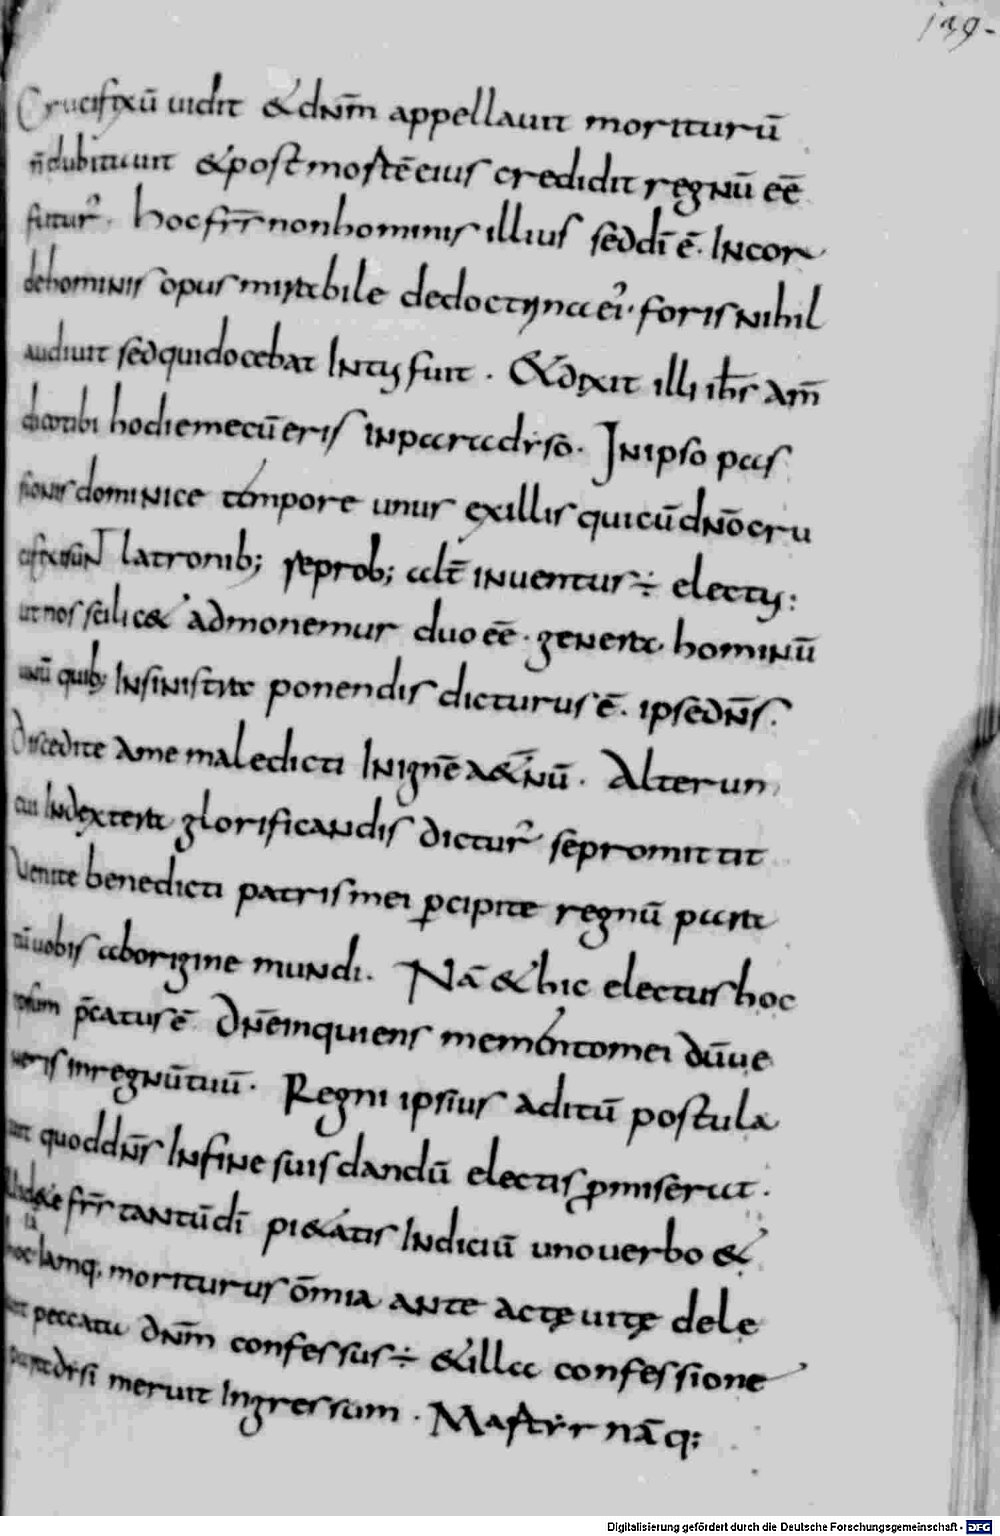 139.
Crucifixū uidit & dnm̄ appellauit moriturū
n̄ dubitauit & post mortē eius credidit regnū eē
futur̓. hoc frr̄ non hominis illius sed dī ē. In cor
de hominis opus mirabile de doctrina ei̓. foris nihil
audiuit sed qui docebat intus fuit. & dixit illi ihs̄ am̄
dico tibi hodie mecū eris in paradiso. In ipso pas
sionis dominice tempore unus ex illis qui cū dnō cru
cifixi sunt latronib; reprob; alt̄ inuentus ÷ electus:
ut nos scilic& admonemur duo eē. genera hominū
unū quib; In sinistra ponendis dicturus ē. ipse dn̄s.
Discedite a me maledicti In ignē a&̄nū. Alterun
cui In dextera glorificandis dictur̓ se promittit
Venite benedicti patris mei p̱cipite regnū para
tū uobis ab origine mundi. Nā & hic electus hoc
ipsum p̄catus ē Dn̄e inquiens memento mei dū ue
neris in regnū tuū. Regni ipsīus aditū postula
uit quod dn̄s In fine suis dandū electis ꝓmiserat.
Uid&e frr̄ tantū dī pi&atis Indiciū uno uerbo &
hoc iamq, moriturus ōmia ante actę uitę dele
uit peccata dnm̄ confessus ÷ & illa confessione
paradisi meruit Ingressum. Martir nāq;
Digitalisierung gefördert durch die Deutsche Forschungsgemeinschaft - DFG